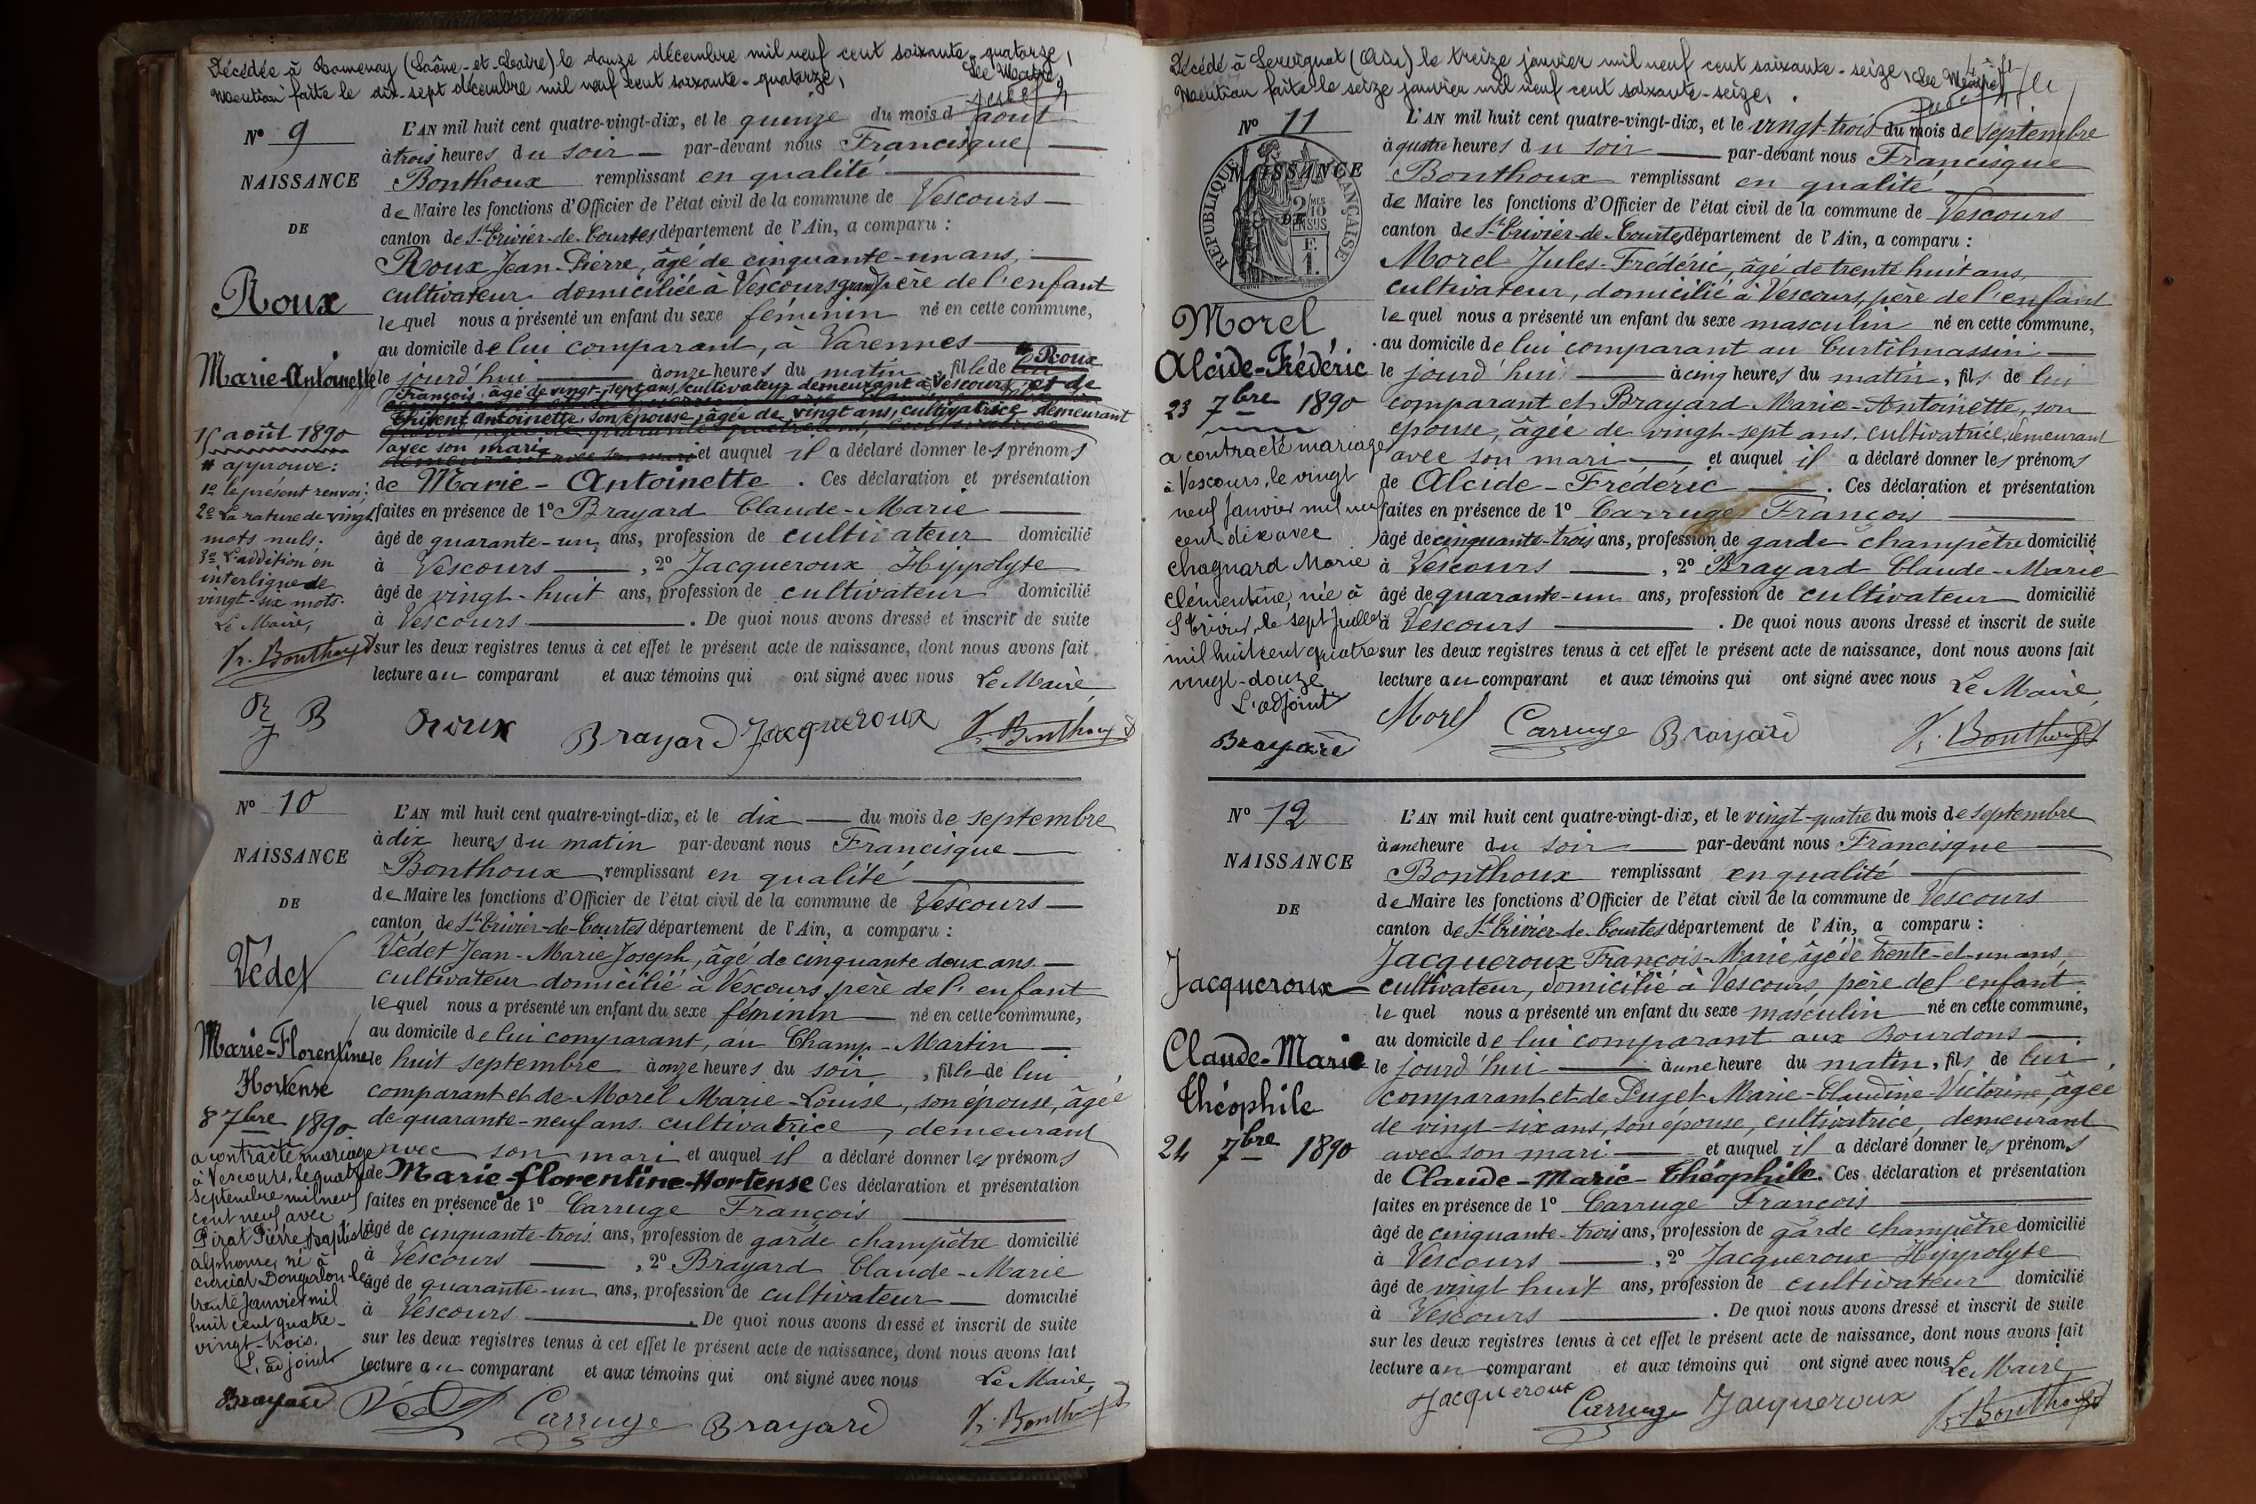 Décédée à Romenay (Saône-et-Loire) le douze décembre mil neuf cent soixante-quatorze,
Mention faite le dix-sept décembre mil neuf cent soixante-quatorze, Le Maire,
N° 9
NAISSANCE
DE
Roux
Marie-Antoinette
15 août 1890
# approuvé:
1º le présent renvoi;
2º La rature de vingt
mots nuls.
3º L'addition en
interligne de
vingt-six mots.
Le Maire,
Fr. Bonthoux
R B
J
L'AN mil huit cent quatre-vingt-dix, et le quinze du mois d'août
à trois heures du soir — par-devant nous Francisque —
Bonthoux remplissant en qualité —
de Maire les fonctions d'Officier de l'état civil de la commune de Vescours —
canton de St-Trivier-de-Courtes département de l'Ain, a comparu :
Roux Jean-Pierre, âgé de cinquante-un ans, —
cultivateur domiciliée à Vescours grand père de l'enfant
lequel nous a présenté un enfant du sexe féminin né en cette commune,
au domicile de lui comparant, à Varennes —
le jourd'hui — à onze heures du matin, fille de lui # Roux
François, âgé de vingt-sept ans, cultivateur demeurant à Vescours, et de
Thitent Antoinette, son épouse, âgée de vingt ans, cultivatrice demeurant
avec son mari
demeurant avec son mari et auquel il a déclaré donner les prénoms
de Marie-Antoinette. Ces déclaration et présentation
faites en présence de 1° Brayard Claude-Marie —
âgé de quarante-un ans, profession de cultivateur domicilié
à Vescours —, 2° Jacqueroux Hippolyte
âgé de vingt-huit ans, profession de cultivateur domicilié
à Vescours —. De quoi nous avons dressé et inscrit de suite
sur les deux registres tenus à cet effet le présent acte de naissance, dont nous avons fait
lecture au comparant et aux témoins qui ont signé avec nous Le Maire,
Roux Brayard Jacqueroux Fr. Bonthoux
N° 10
NAISSANCE
DE
Védet
Marie-Florentine
Hortense
8 7bre 1890
a contracté mariage
à Vescours, le quatre
septembre mil neuf
cent neuf avec
Pirat Pierre Baptiste
alphonse, né à
curciat Dongalon le
trente janvier mil
huit cent quatre-
vingt-trois.
L'adjoint
Brayard
L'AN mil huit cent quatre-vingt-dix, et le dix — du mois de septembre
à dix heures du matin par-devant nous Francisque —
Bonthoux remplissant en qualité —
de Maire les fonctions d'Officier de l'état civil de la commune de Vescours —
canton de St-Trivier-de-Courtes département de l'Ain, a comparu :
Védet Jean-Marie Joseph, âgé de cinquante deux ans —
cultivateur domicilié à Vescours, père de l'enfant
lequel nous a présenté un enfant du sexe féminin — né en cette commune,
au domicile de lui comparant, au Champ-Martin —
le huit septembre à onze heures du soir, fille de lui
comparant et de Morel Marie-Louise, son épouse, âgée
de quarante-neuf ans cultivatrice, demeurant
avec son mari et auquel il a déclaré donner les prénoms
de Marie-florentine-Hortense Ces déclaration et présentation
faites en présence de 1° Carruge François —
âgé de cinquante-trois ans, profession de garde champêtre domicilié
à Vescours —, 2° Brayard Claude-Marie
âgé de quarante-un ans, profession de cultivateur — domicilié
à Vescours —. De quoi nous avons dressé et inscrit de suite
sur les deux registres tenus à cet effet le présent acte de naissance, dont nous avons fait
lecture au comparant et aux témoins qui ont signé avec nous Le Maire,
Védet Carruge Brayard Fr. Bonthoux
Décédé à Servignat (Ain) le treize janvier mil neuf cent soixante-seize,
Mention faite le seize janvier mil neuf cent soixante-seize, Le Maire,
N° 11
NAISSANCE
DE
RÉPUBLIQUE FRANÇAISE
Morel
Alcide-Frédéric
23 7bre 1890
a contracté mariage
à Vescours, le vingt
neuf Janvier mil neuf
cent dix avec
Chagnard Marie
Clémentine, née à
St Trivier, le sept Juillet
mil huit cent quatre
vingt-douze
L'adjoint
Brayard
L'AN mil huit cent quatre-vingt-dix, et le vingt-trois du mois de septembre
à quatre heures du soir — par-devant nous Francisque
Bonthoux remplissant en qualité —
de Maire les fonctions d'Officier de l'état civil de la commune de Vescours
canton de St-Trivier-de-Courtes département de l'Ain, a comparu :
Morel Jules-Frédéric, âgé de trente huit ans,
cultivateur, domicilié à Vescours, père de l'enfant
lequel nous a présenté un enfant du sexe masculin né en cette commune,
au domicile de lui comparant au Curtilmassin —
le jourd'hui — à cinq heures du matin, fils de lui
comparant et Brayard Marie-Antoinette, son
épouse, âgée de vingt-sept ans, cultivatrice, demeurant
avec son mari — et auquel il a déclaré donner les prénoms
de Alcide-Fréderic —. Ces déclaration et présentation
faites en présence de 1° Carruge François —
âgé de cinquante-trois ans, profession de garde champêtre domicilié
à Vescours —, 2° Brayard Claude-Marie
âgé de quarante-un ans, profession de cultivateur — domicilié
à Vescours —. De quoi nous avons dressé et inscrit de suite
sur les deux registres tenus à cet effet le présent acte de naissance, dont nous avons fait
lecture au comparant et aux témoins qui ont signé avec nous Le Maire,
Morel Carruge Brayard Fr. Bonthoux
N° 12
NAISSANCE
DE
Jacqueroux
Claude-Marie
Théophile
24 7bre 1890
L'AN mil huit cent quatre-vingt-dix, et le vingt-quatre du mois de septembre
à une heure du soir — par-devant nous Francisque —
Bonthoux remplissant en qualité —
de Maire les fonctions d'Officier de l'état civil de la commune de Vescours
canton de St-Trivier-de-Courtes département de l'Ain, a comparu :
Jacqueroux François-Marie, âgé de trente-et-un ans,
cultivateur, domicilié à Vescours, père del'enfant
lequel nous a présenté un enfant du sexe masculin né en cette commune,
au domicile de lui comparant aux Bourdons —
le jourd'hui — à une heure du matin, fils de lui
comparant et de Pujet Marie-Claudine-Victorine, âgée
de vingt-six ans, son épouse, cultivatrice, demeurant
avec son mari — et auquel il a déclaré donner les prénoms
de Claude-Marie-Théophile. Ces déclaration et présentation
faites en présence de 1° Carruge François —
âgé de cinquante-trois ans, profession de garde champêtre domicilié
à Vescours —, 2° Jacqueroux Hippolyte
âgé de vingt huit ans, profession de cultivateur domicilié
à Vescours —. De quoi nous avons dressé et inscrit de suite
sur les deux registres tenus à cet effet le présent acte de naissance, dont nous avons fait
lecture au comparant et aux témoins qui ont signé avec nous Le Maire,
Jacqueroux Carruge Jacqueroux Fr. Bonthoux